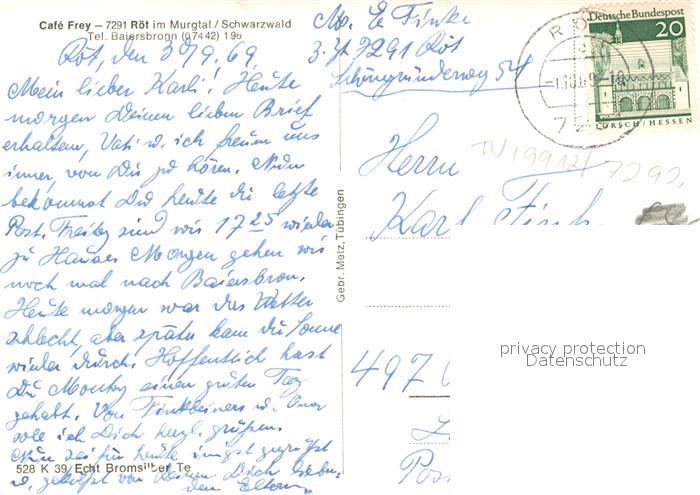 Café Frey – 7291 Röt im Murgtal / Schwarzwald
Tel. Baiersbronn (07442) 196
Röt, den 30/9. 69
Mein lieber Karli! Heute
morgen Deinen lieben Brief
erhalten, Vati u. ich freuen uns
immer, von Dir zu hören. Nun
bekommst Du heute die letzte
Post. Freitag sind wir 17 25 wieder
zu Hause. Morgen gehen wir
noch mal nach Baiersbron.
Heute morgen war das Wetter
schlecht, aber später kam die Sonne
wieder durch. Hoffentlich hast
Du Montag einen guten Tag
gehabt. Von Finkbeiners u. Oma
soll ich Dich herzl. grüßen.
Nun sei für heute innigst gegrüßt
u. geküsst von Deinen Dich lieben
den Eltern
528 K 39 Echt Bromsilber Te
Gebr. Metz, Tübingen
Abs. E. Finke
3. Zt. 7291 Röt
Schöngründerweg 54
Deutsche Bundespost
20
LORSCH/HESSEN
RÖ
Herrn
Karl Fink
7292
497
Pos
privacy protection
Datenschutz